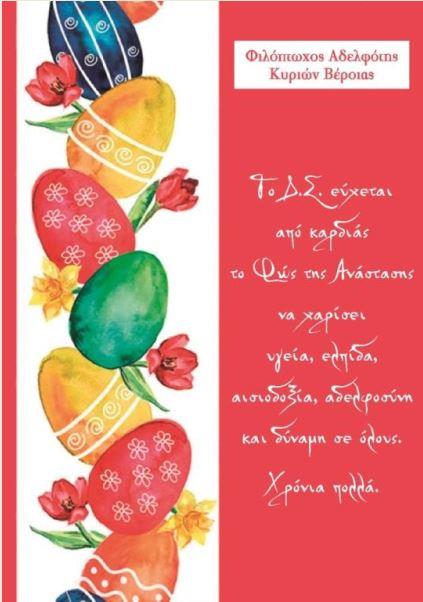 Φιλόπτωχος Αδελφότης
Κυριών Βέροιας
Το Δ.Σ. εύχεται
από καρδιάς
το Φώς της Ανάστασης
να χαρίσει
υγεία, ελπίδα,
αισιοδοξία, αδελφοσύνη
και δύναμη σε όλους.
Χρόνια πολλά.